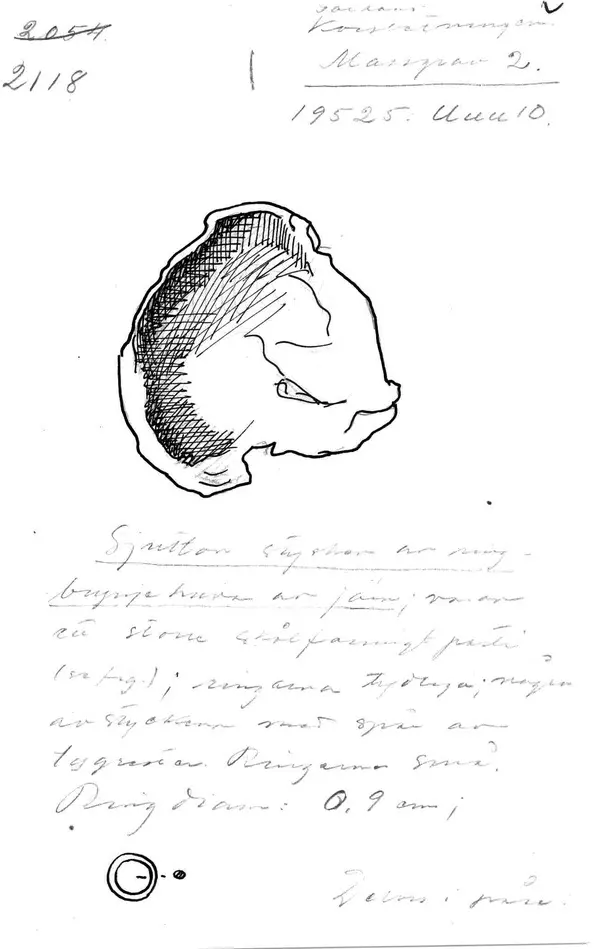 2054.
2118
Korsbetningen
Massgrav 2.
19525. Unu 10.
Sjutton stycken av ring-
brynjehuva av järn; varav
ett större skålformigt parti
(se fig.); ringarna tydliga; några
av styckena med spår av
tygrester. Ringarna små.
Ring diam: 0,9 cm;